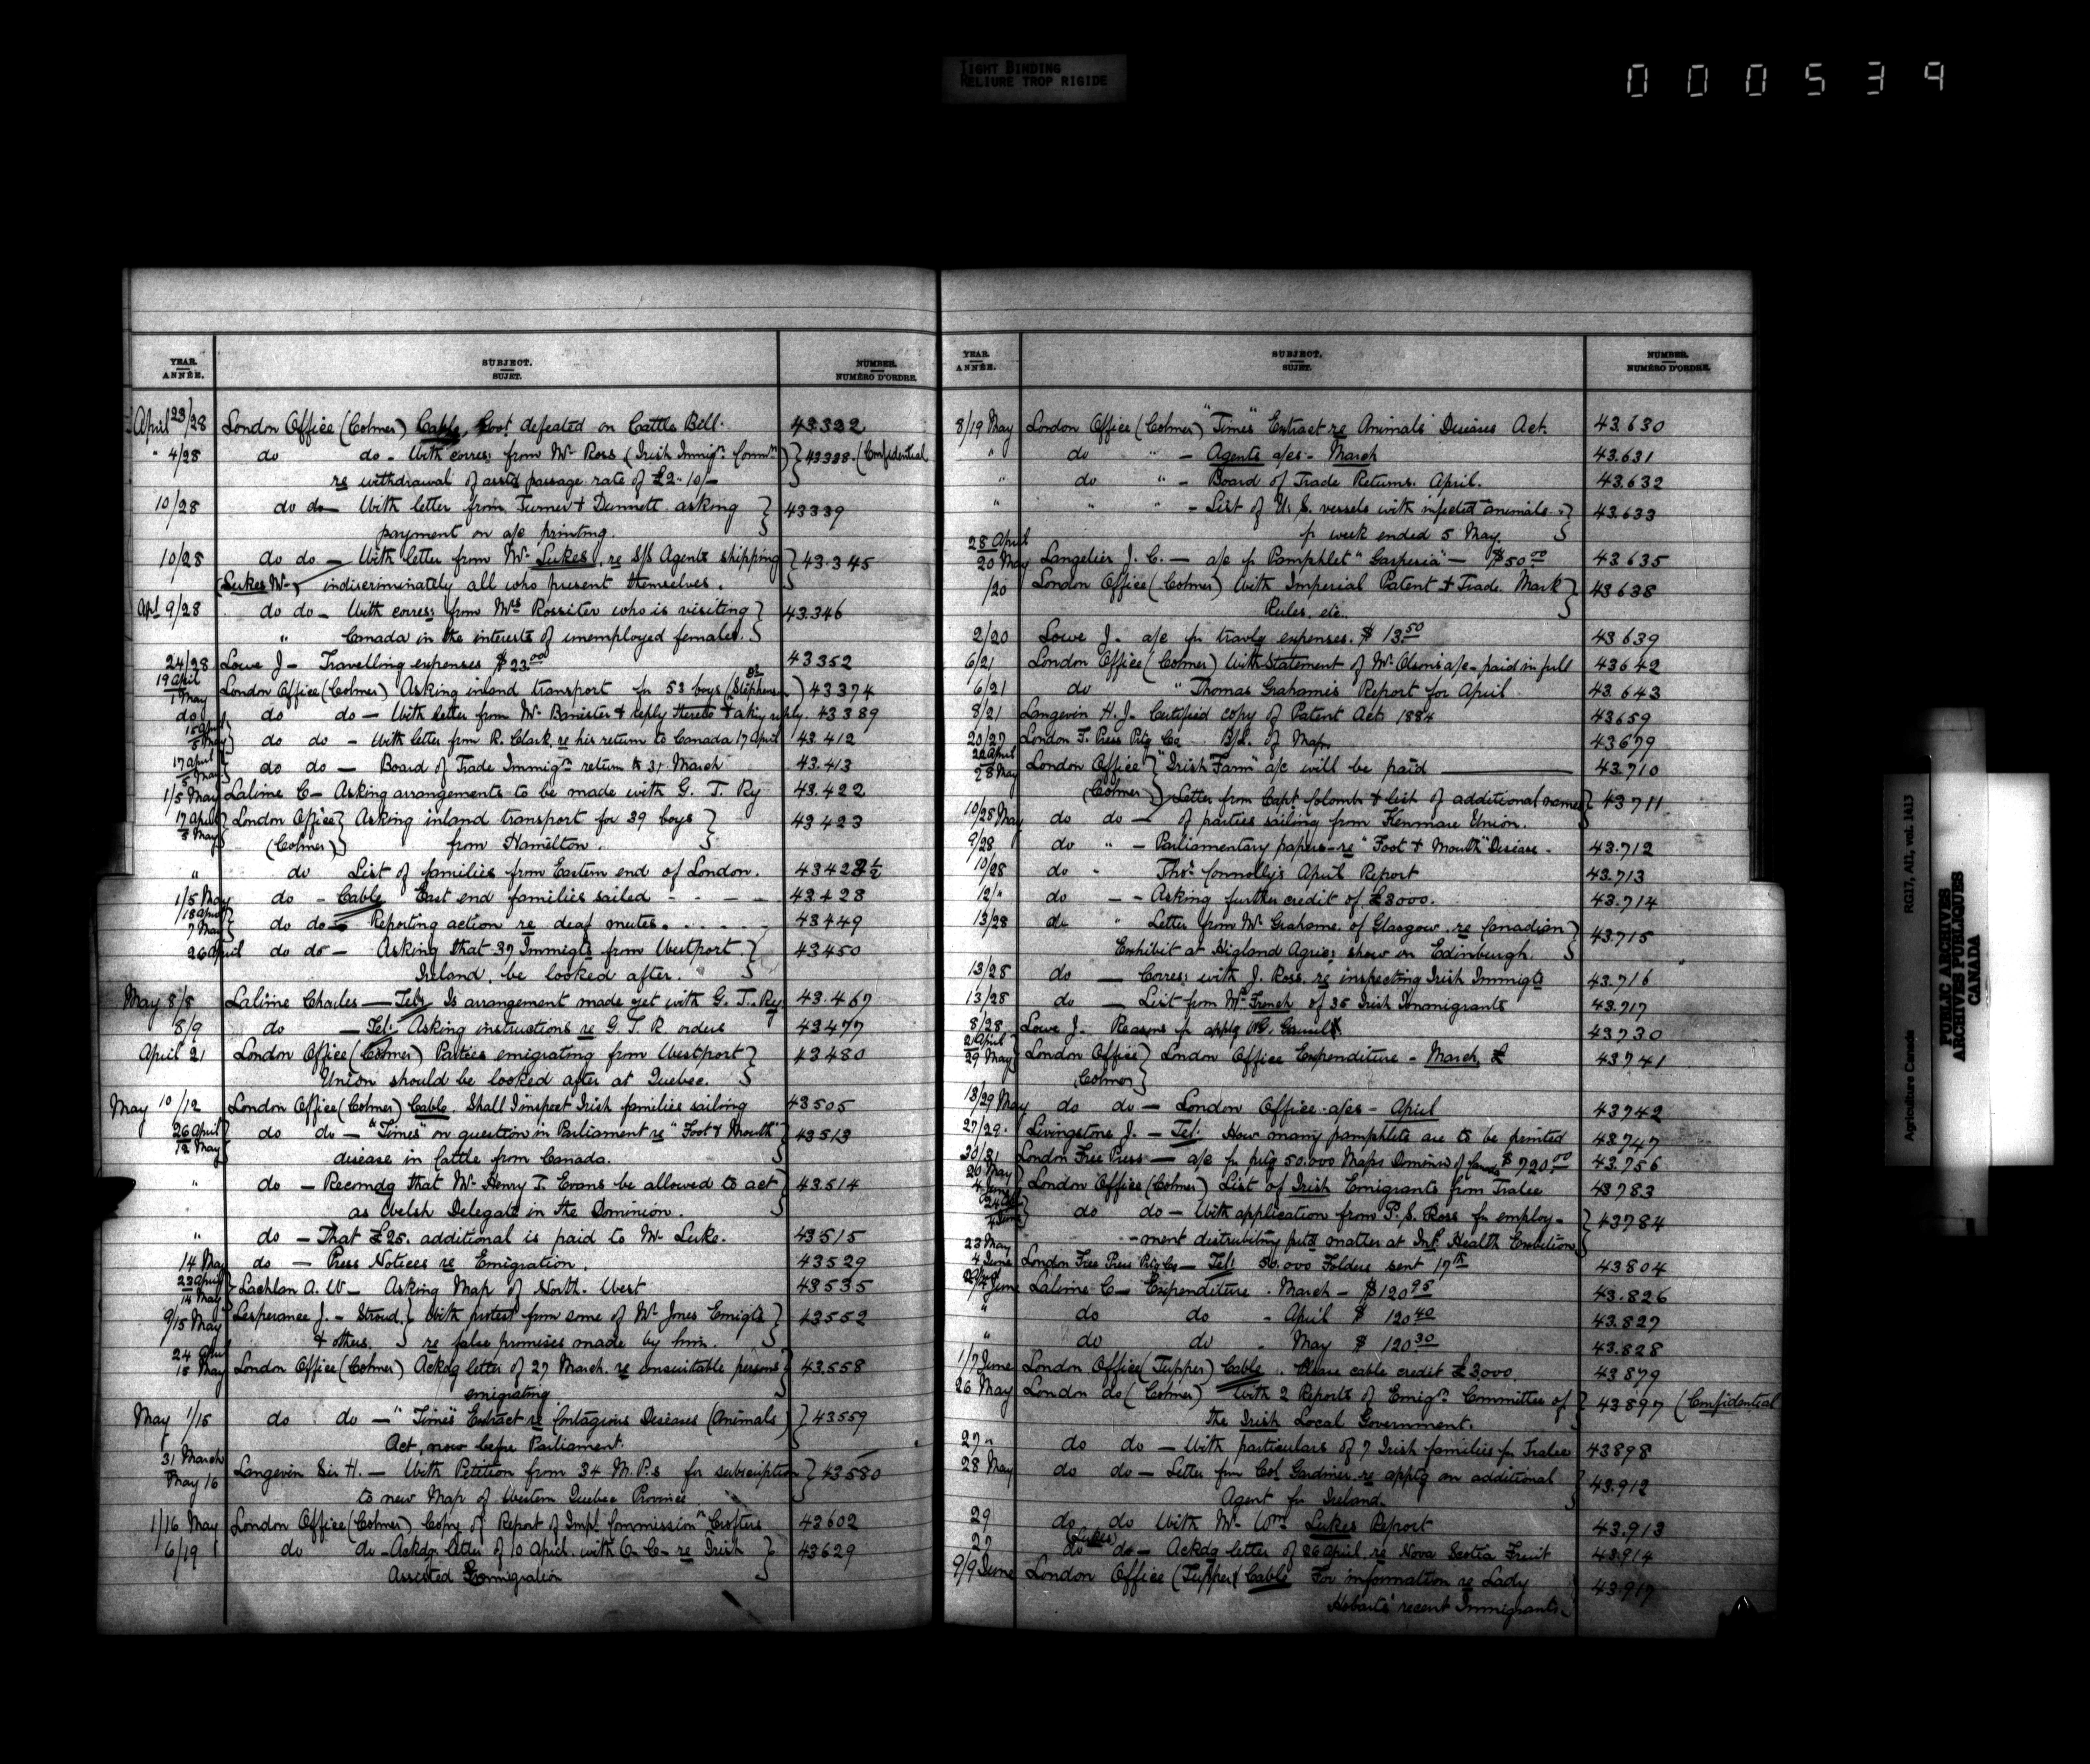 TIGHT BINDING
RELIURE TROP RIGIDE
000539
YEAR. ANNÉE. SUBJECT. SUJET. NUMBER. NUMÉRO D'ORDRE.
April 23/28 London Office (Colmer) Cable, Govt defeated on Cattle Bill. 43322
" 4/28 do do - With corres: from Mr Ross (Irish Immign Commr) 43338 (Confidential
re withdrawal of asstd passage rate of £2-10/-
10/28 do do - With letter from Turner & Dunnett asking 43339
payment on a/c printing.
10/28 do do - With letter from Mr Lukes, re S/S Agents shipping 43.345
(Lukes Mr- indiscriminately all who present themselves.
Apl 9/28 do do - With corres: from Mrs Rossiter who is visiting 43.346
" Canada in the interests of unemployed females.
24/28 Lowe J - Travelling expenses $23.00 43352
19 April 1 May London Office (Colmer) Asking inland transport for 53 boys (Dr Stephenson) 43374
do do do - With letter from Mr Banister & reply thereto & asking reply. 43389
18 April 5 May do do - With letter from R. Clark, re his return to Canada 17 April 43412
17 April 5 May do do - Board of Trade Immign return to 31 March 43.413
1/5 May Lalime C - Asking arrangements to be made with G. T. Ry 43.422
17 April 8 May London Office Asking inland transport for 39 boys 43423
(Colmer) from Hamilton.
" do List of families from Eastern end of London. 43423½
1/5 May do - Cable East end families sailed - - - - 43428
18 April 7 May do do - Reporting action re deaf mutes. . . . . . 43449
26 April do do - Asking that 37 Immigts from Westport 43450
Ireland, be looked after.
May 8/8 Lalime Charles - Telg Is arrangement made yet with G. T. Ry 43.467
8/9 do - Tel: Asking instructions re G. T. R. orders 43477
April 21 London Office (Colmer) Parties emigrating from Westport 43480
Union should be looked after at Quebec.
May 10/12 London Office (Colmer) Cable. Shall I inspect Irish families sailing 43505
26 April 12 May do do - "Times" on question in Parliament re "Foot & Mouth" 43513
disease in Cattle from Canada.
" do - Recomdg that Mr Henry T. Evans be allowed to act 43.514
as Welsh Delegate in the Dominion.
" do - That £25. additional is paid to Mr Luke. 43515
14 May do - Press Notices re Emigration. 43529
23 April 14 May Lachlan A. W - Asking Map of North-West 43535
9/15 May Lesperance J. - Stroud, With protest from some of Mr Jones Emigts 43552
& others re false promises made by him.
24 April 15 May London Office (Colmer) Ackdg letter of 27 March, re unsuitable persons 43.558
emigrating
May 1/15 do do - "Times" Extract re Contagious Diseases (Animals) 43559
Act, now before Parliament.
31 March May 16 Langevin Sir H. - With Petition from 34 M.P.s for subscription 43580
to new Map of Western Quebec Province
1/16 May London Office (Colmer) Copy of Report of Impl Commission "Crofters 43602
6/19 do do - Ackdg letter of 10 April, with O-C- re Irish 43629
Assisted Emmigration
YEAR. ANNÉE. SUBJECT. SUJET. NUMBER. NUMÉRO D'ORDRE.
8/19 May London Office (Colmer) "Times" Extract re Animals Diseases Act. 43.630
" do " - Agents a/cs - March 43.631
" do " - Board of Trade Returns. April. 43.632
" " " - List of U. S. vessels with infected animals 43.633
fr week ended 5 May.
28 April 20 May Langelier J. C. - a/c fr Pamphlet "Gaspesia" - $50.00 43635
/20 London Office (Colmer) With Imperial Patent & Trade Mark 43638
Rules, etc.
2/20 Lowe J. a/c fr travlg expenses. $13.50 43639
6/21 London Office (Colmer) With Statement of Mr Olson's a/c - paid in full 43642
6/21 do " Thomas Grahame's Report for April 43.643
8/21 Langevin H. J. Certified copy of Patent Act. 1884 43659
20/27 London F. Press Prtg Co B/L. of Map. 43679
22 April 28 May London Office "Irish Farm" a/c will be paid 43.710
(Colmer) Letter from Capt Colomb & list of additional names 43711
10/28 May do do - of parties sailing from Kenmare Union.
9/28 do " - Parliamentary papers - re "Foot & Mouth" Disease - 43.712
10/28 do " Thos Connolly's April Report 43.713
12/" do - - Asking further credit of £3000. 43.714
13/28 do " Letter from Mr Grahame, of Glasgow, re Canadian 43.715
Exhibit at Higland Agric: show in Edinburgh.
13/28 do - Corres: with J. Ross, re inspecting Irish Immigts 43.716
13/28 do - List from Mr French of 35 Irish Immigrants 43.717
8/28 Lowe J. Reasons fr applg 43730
2 April 29 May London Office London Office Expenditure - March, £ 43741
(Colmer)
13/29 May do do - London Office - a/cs - April 43742
27/29 Livingstone J. - Tel: How many pamphlets are to be printed 43747
30/31 London Free Press - a/c fr prtg 50.000 Maps Dominion of Canada $720.00 43.756
20 May 4 June London Office (Colmer) List of Irish Emigrants from Tralee 43783
24 4 June do do - With application from P. S. Ross fr employ- 43784
-ment distributing prtd matter at Intl Health Exhibition
23 May 4 June London Free Press Prtg Co - Tel: 50.000 Folders sent 17th 43804
June Lalime C - Expenditure . March - $120.95 43.826
" do do - April $ 120.40 43.827
" do do - May $ 120.30 43.828
1/7 June London Office (Tupper) Cable. Please cable credit £3000. 43879
26 May London do (Colmer) With 2 Reports of Emign Committee of 43897 (Confidential
the Irish Local Government.
27 " do do - With particulars of 7 Irish families fr Tralee 43898
28 May do do - Letter from Col Gardiner re applg an additional 43.912
Agent fr Ireland.
29 do do With Mr Wm Lukes Report 43.913
27 do (Lukes) do - Ackdg letter of 26 April, re Nova Scotia Fruit 43.914
9/9 June London Office (Tupper) Cable For information re Lady 43917
Hobart's recent Immigrants.
Agriculture Canada RG17, AII, vol. 1413
PUBLIC ARCHIVES
ARCHIVES PUBLIQUES
CANADA